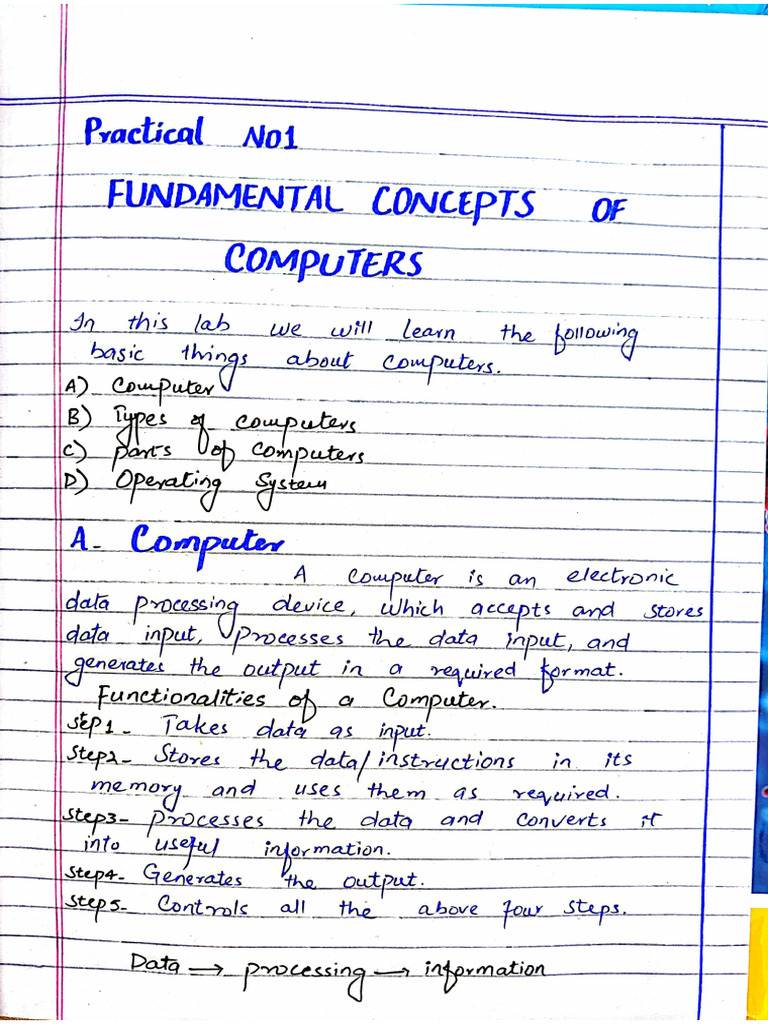 Practical No1
FUNDAMENTAL CONCEPTS OF
COMPUTERS
In this lab we will learn the following
basic things about computers.
A) Computer
B) Types of computers
C) parts of computers
D) Operating System
A- Computer
A computer is an electronic
data processing device, which accepts and stores
data input, processes the data input, and
generates the output in a required format.
Functionalities of a Computer.
Step1- Takes data as input.
Step2- Stores the data/instructions in its
memory and uses them as required.
Step3- processes the data and converts it
into useful information.
Step4- Generates the output.
Step5- Controls all the above four steps.
Data → processing → information